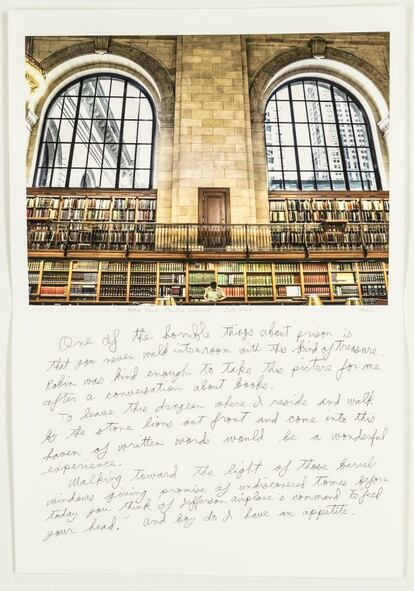 New York Public Library July 2012
One of the horrible things about prison is
that you never walk into a room with this kind of treasure.
Robin was kind enough to take this picture for me
after a conversation about books.
To leave this dungeon where I reside and walk
by the stone lions out front and come into this
haven of written words would be a wonderful
experience.
Walking toward the light of those barrel
windows giving promise of undiscovered tomes before
today you think of Jefferson airplane's command to "feed
your head." and boy do I have an appetite.